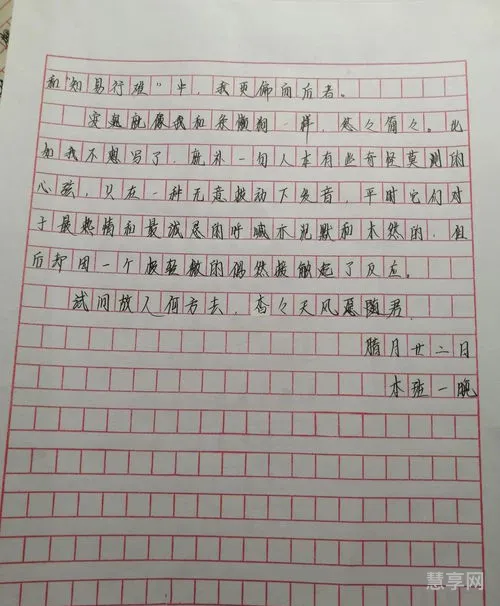 和“知易行难”中，我更偏向后者。
实超就像我和朵懒翱一样，悠々简々。比
如我不想写了，就补一句人本有些奇怪莫测的
心弦，只在一种无意拨动下发音，平时它们对
于最热情和最诚恳的呼喊亦沉默和木然的，但
后却因一个极轻微的偶然接触起了反应。
试问故人何方去，杳々天风惹随君
腊月廿二日
本班一晚
慧享网